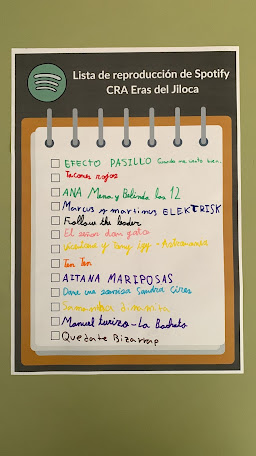 Lista de reproducción de Spotify
CRA Eras del Jiloca
EFECTO PASILLO Cuando me siento bien.
Tacones rojos
ANA Mena y Belinda las 12
Marcus y martinus ELEKTRISK
Follow the leader
El señor don gato
y Tony - Astronauta
Ten Ten
AITANA MARIPOSAS
Dame una sonrisa Sandra Cires
Samanta dinamita
Manuel turizo - La Bachata
Quedate Bizarrap